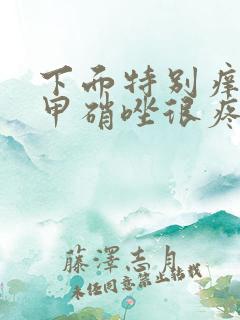 下而特别痒
甲硝唑很疼
藤澤志月
未经同意禁止转载